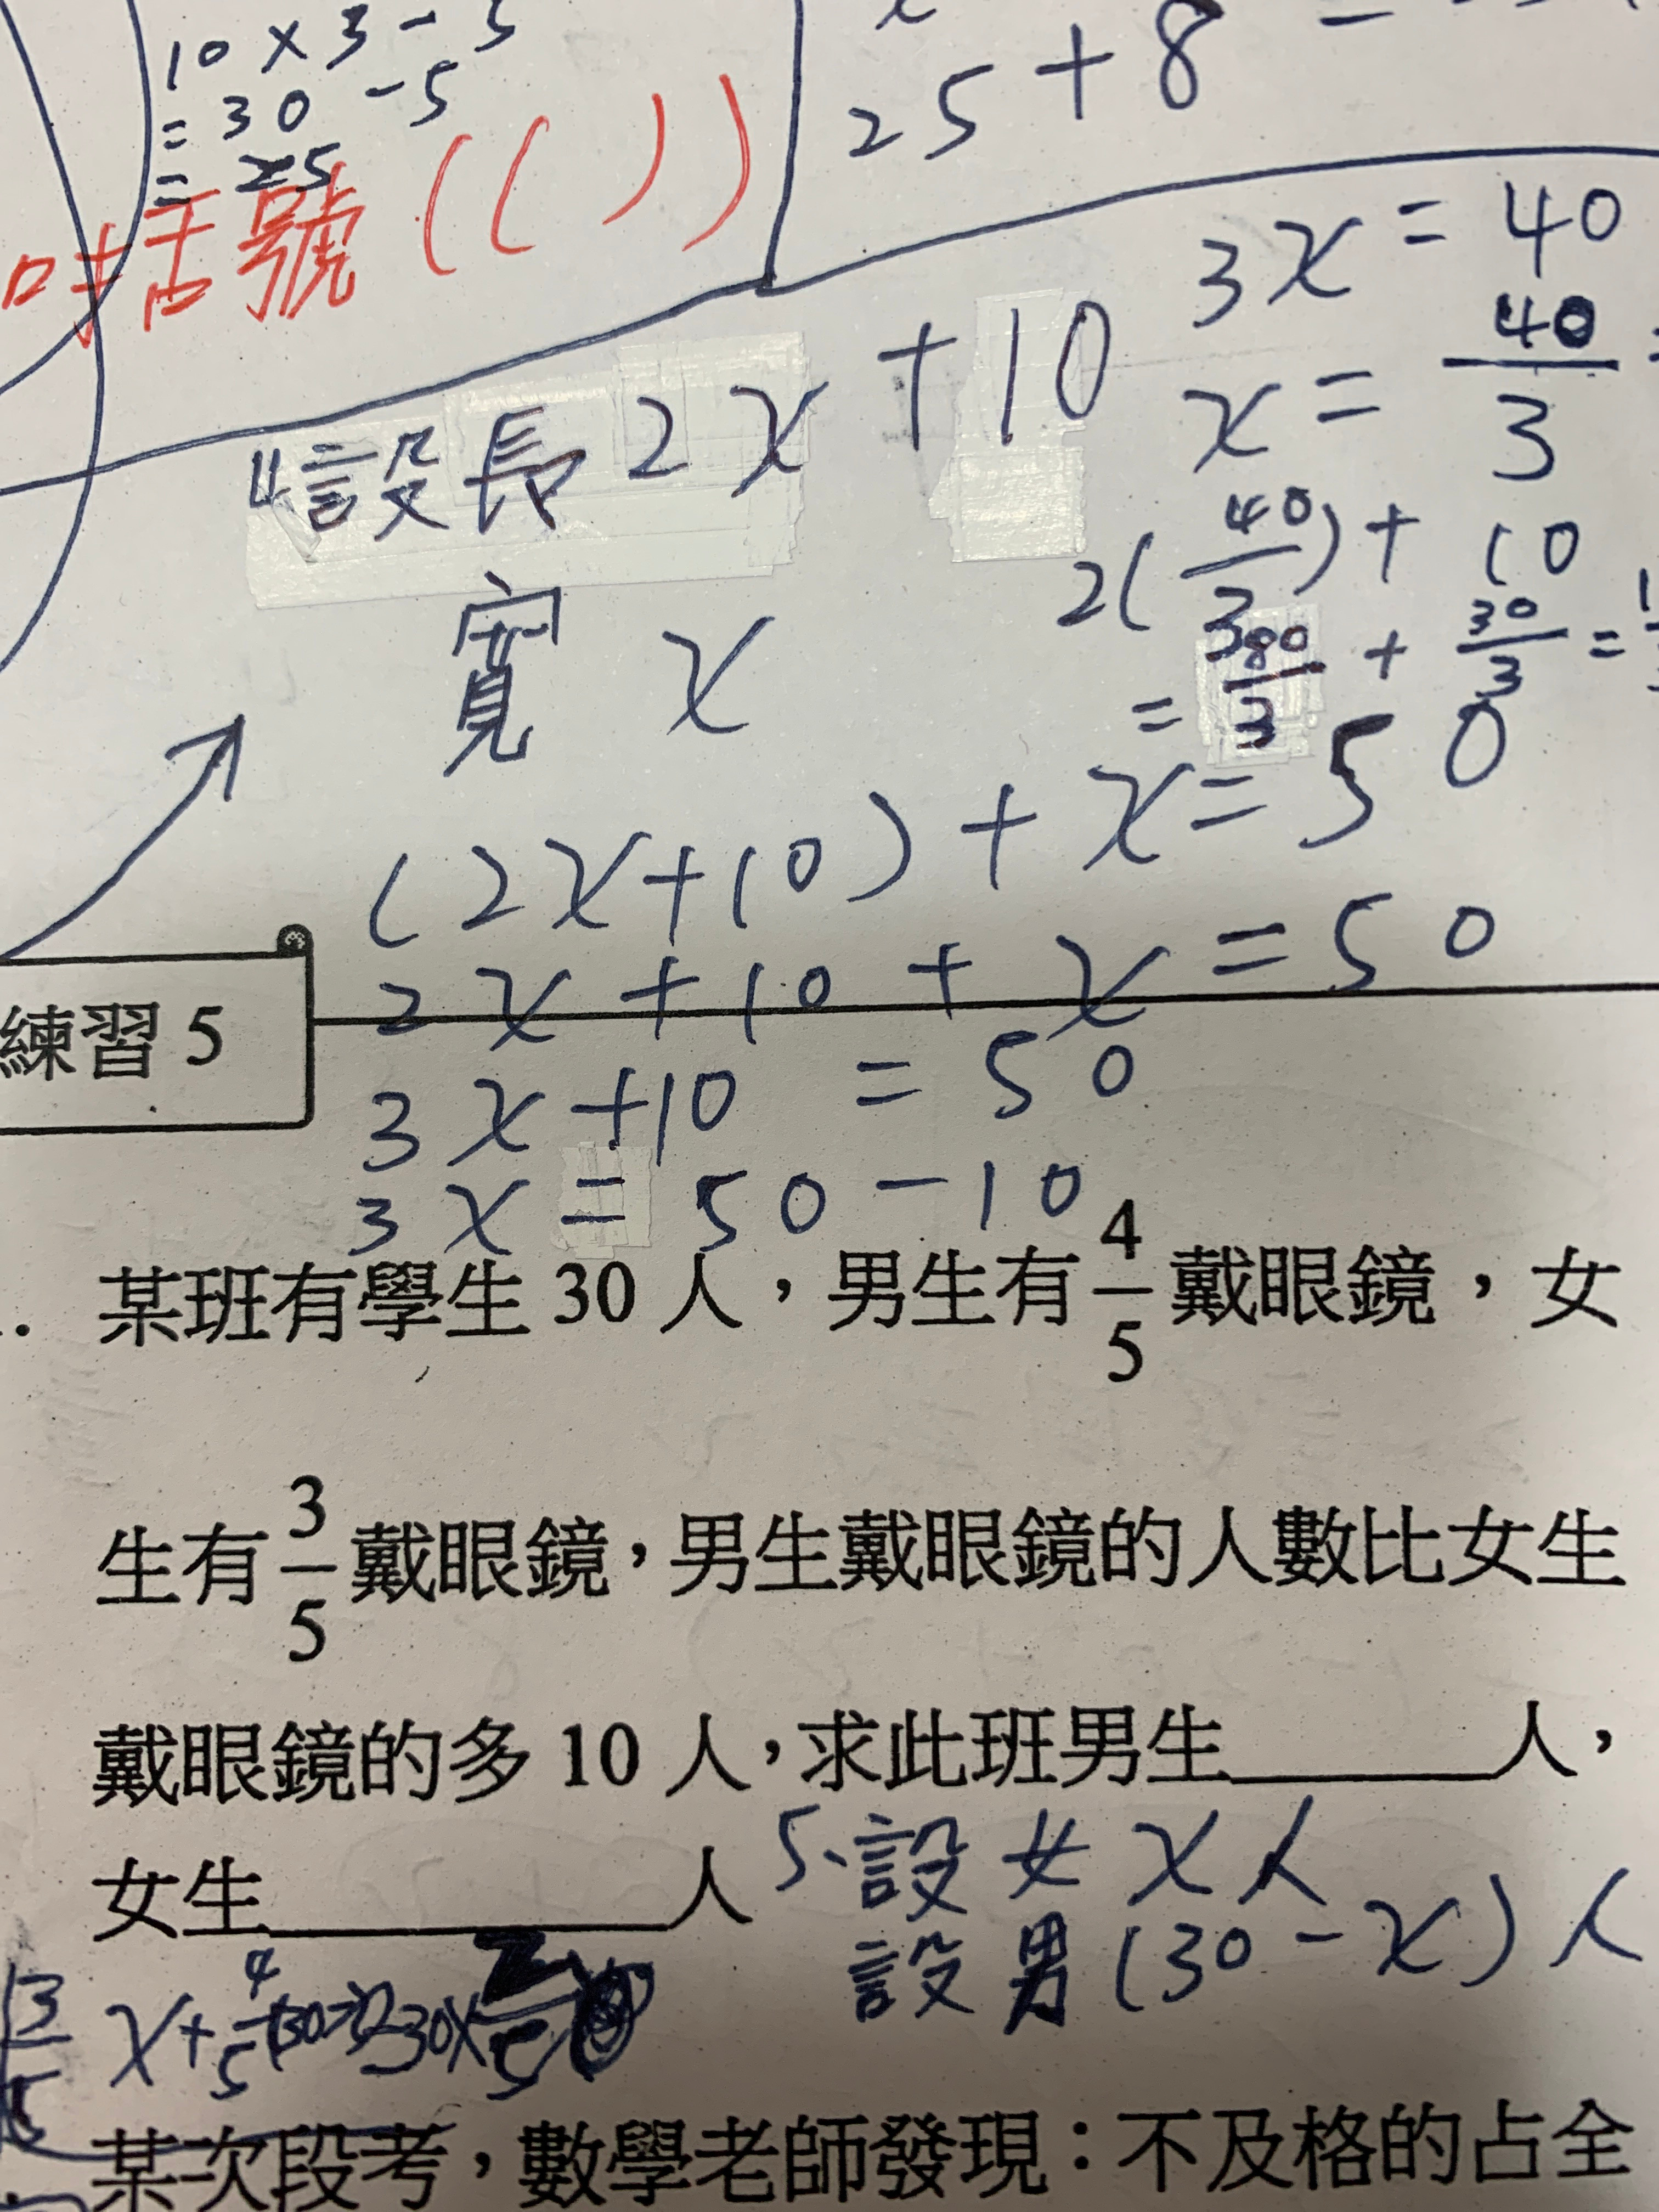 10 × 3 - 5
= 30 - 5
= 25
括號 ( ( ) )
25 + 8
3x = 40
x = 40/3
4設長 2x + 10
寬 x
2(40/3) + 10
= 80/3 + 30/3 =
(2x+10) + x = 50
2x + 10 + x = 50
練習 5
3x + 10 = 50
3x = 50 - 10
某班有學生 30 人，男生有 4/5 戴眼鏡，女
生有 3/5 戴眼鏡，男生戴眼鏡的人數比女生
戴眼鏡的多 10 人，求此班男生______人，
女生______人
5、設女 x 人
設男 (30 - x) 人
3/5 x + 4/5 (30-x)
某次段考，數學老師發現：不及格的占全